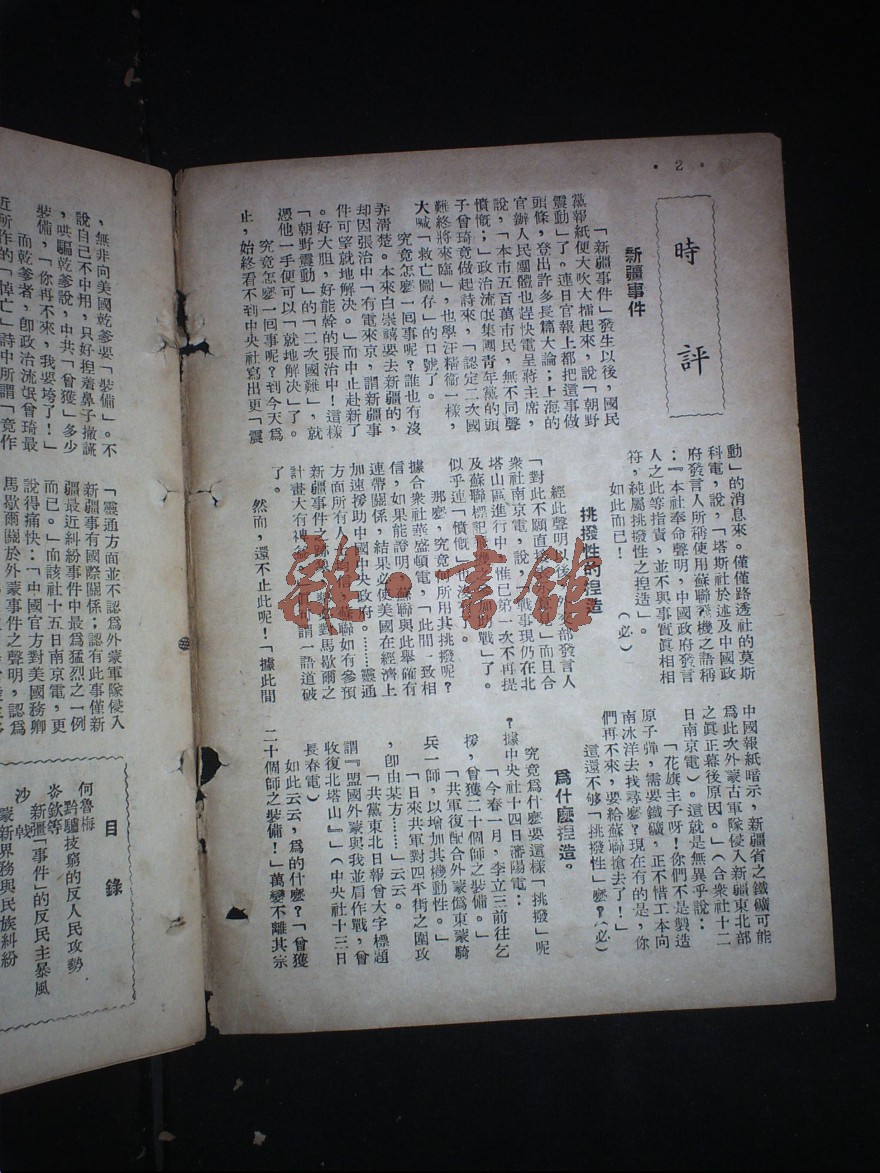 ・2・
時評
新疆事件
「新疆事件」發生以後，國民
黨報紙便大吹大擂起來，說「朝野
震動」了。連日官報上都把這事做
頭條，登出許多長篇大論；上海的
官辦人民團體也趕快電呈蔣主席，
說，「本市五百萬市民，無不同聲
憤慨；」政治流氓集團青年黨的頭
子曾琦竟做起詩來，「認定二次國
難終將來臨」，也學汪精衛一樣，
大喊「救亡圖存」的口號了。
究竟怎麼一回事呢？誰也有沒
弄清楚。本來白崇禧要去新疆的，
却因張治中「有電來京，謂新疆事
件可望就地解决。」而中止赴新了
。好大胆，好能幹的張治中！這樣
「朝野震動」的「二次國難」，就
憑他一手便可以「就地解决」了。
究竟怎麼一回事呢？到今天爲
止，始終看不到中央社寫出更「震
動」的消息來。僅僅路透社的莫斯
科電，說，「塔斯社於述及中國政
府發言人所稱使用蘇聯飛機之語稱
：『本社奉命聲明，中國政府發言
人之此等指責，並不與事實眞相相
符，純屬挑撥性之捏造」。
如此而已！（必）
挑撥性的捏造
經此聲明以後，部發言人
「對此不願直接」而且合
衆社南京電，說，戰事現仍在北
塔山區進行中，惟已第一次不再提
及蘇聯標記戰」了。
似乎連「憤慨」也沒。
那麼，究竟所用其挑撥呢？
據合衆社華盛頓電，「此間一致相
信，如果能證明，蘇聯與此舉確有
連帶關係，結果必使美國在經濟上
加速援助中國中央政府。……靈通
方面所有人蘇聯如有參預
新疆事件之對馬歇爾之
計畫大有裨謂一語道破
了。
然而，還不止此呢！「據此間
中國報紙暗示，新疆省之鐵礦可能
爲此次外蒙古軍隊侵入新疆東北部
之眞正幕後原因。」（合衆社十二
日南京電）。這就是無異乎說：
「花旗主子呀！你們不是製造
原子彈，需要鐵礦，正不惜工本向
南冰洋去找尋麼？現在有的是，你
們再不來，要給蘇聯搶去了！」
這還不够「挑撥性」麼？（必）
爲什麼捏造。
究竟爲什麼要這樣「挑撥」呢
？據中央社十四日瀋陽電：
「今春一月，李立三前往乞
援，曾獲二十個師之裝備。」
「共軍復配合外蒙僞東蒙騎
兵一師，以增加其機動性。」
「日來共軍對四平街之圍攻
，卽由某方……」云云。
「共黨東北日報曾大字標題
謂『盟國外蒙與我並肩作戰，曾
收復北塔山』」（中央社十三日
長春電）
如此云云，爲的什麼？「曾獲
二十個師之裝備！」萬變不離其宗
，無非向美國乾爹要「裝備」。不
說自己不中用，只好揑着鼻子撒謊
，哄騙乾爹說，中共「曾獲」多少
裝備，「你再不來，我要垮了！」
而乾爹者，卽政治流氓曾琦最
近所作的「悼亡」詩中所謂「竟作
「靈通方面並不認爲外蒙軍隊侵入
新疆事有國際關係；認有此事僅新
疆最近糾紛事件中最爲猛烈之一例
而已。」而該社十五日南京電，更
說得痛快：「中國官方對美國務卿
馬歇爾關於外蒙事件之聲明，認爲
目錄
何魯梅
黔驢技窮的反人民攻勢
岑欽等
新疆「事件」的反民主暴風
沙戟
蒙新界務與民族糾紛
雜·書館